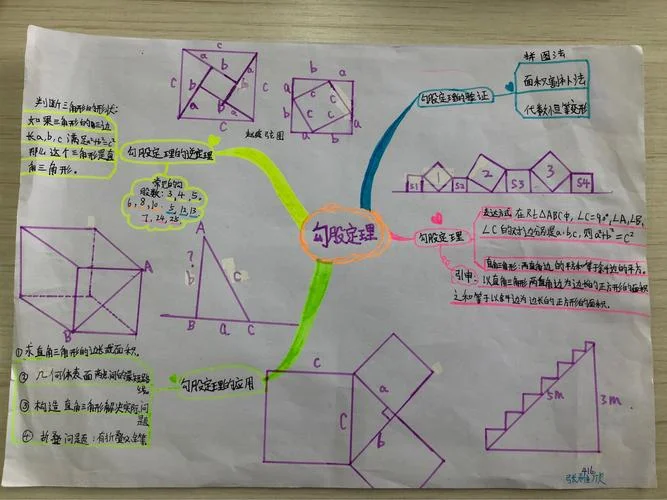 勾股定理
勾股定理的验证
拼图法
面积割补法
代数恒等变形
S1 1 S2 2 S3 3 S4
勾股定理
表达方式:在Rt△ABC中,∠C=90°,∠A,∠B,
∠C的对边分别是a,b,c,则a²+b²=c²
直角三角形:两直角边的平方和等于斜边的平方。
引申:以直角三角形两直角边为边长的正方形的面积
之和等于以斜边为边长的正方形的面积。
勾股定理的逆定理
判断三角形的形状:
如果三角形的三边
长a,b,c满足a²+b²=c²
那么这个三角形是直
角三角形。
常见的勾
股数:3,4,5。
6,8,10. 5,12,13
7,24,25
c
c
c
c
a
b
b
a
b
a
赵爽弦图
b
a
a
b
b
a
a
b
c
c
c
c
A
?
b
c
B
a
C
A
B
勾股定理的应用
①求直角三角形的边长或面积。
② 几何体表面两点间的最短路
线。
③ 构造直角三角形解决实际问
题
④ 折叠问题:有折叠必
c
C
a
b
5m
3m
416